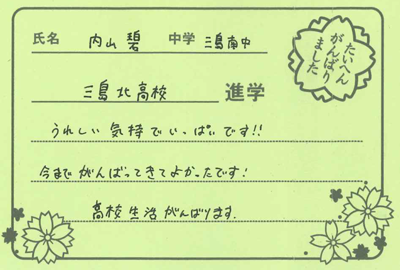 氏名 内山 碧 中学 三島南中
たいへん
がんばり
ました
三島北高校 進学
うれしい気持でいっぱいです!!
今までがんばってきてよかったです!
高校生活がんばります.